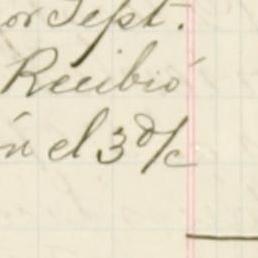 or Sept.
Recibió
n el 3 d/c